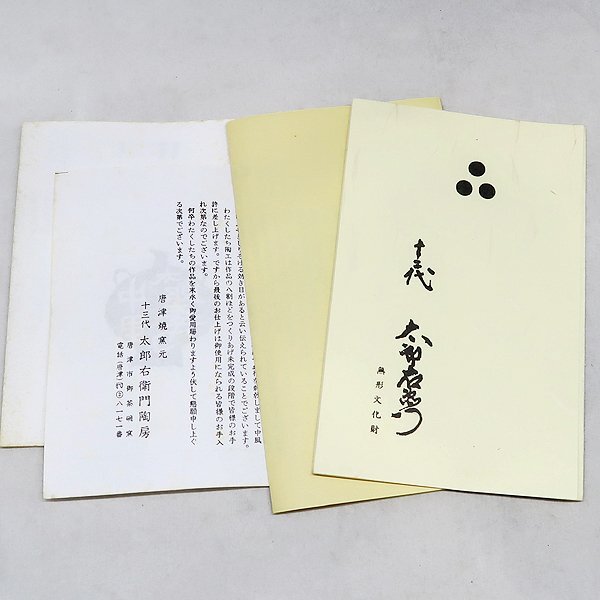 十三代
太郎右衛門
無形文化財
わたくしたち陶工は作品の八割ほどをつくりあげ未完成の段階で皆様のお手
許に差し上げます。ですから最後のお仕上げは御使用になられる皆様のお手入
れ次第なのでございます。
何卒わたくしたちの作品を末永く御愛用賜わりますよう伏して懇願申し上ぐ
る次第でございます。
唐津焼窯元
十三代 太郎右衛門陶房
唐津市御茶碗窯